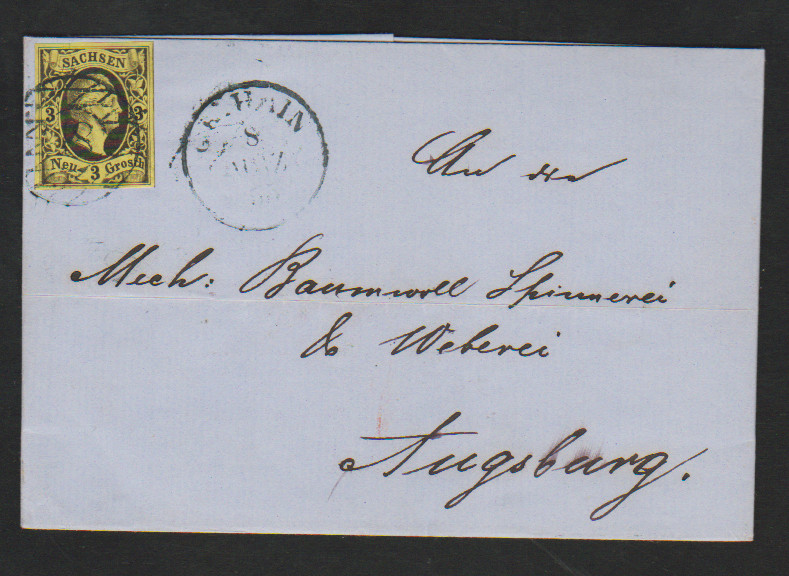 SACHSEN
3 3
Neu 3 Grosch
GR. HAIN
8
An die
Mech: Baumwoll Spinnerei
& Weberei
Augsburg.